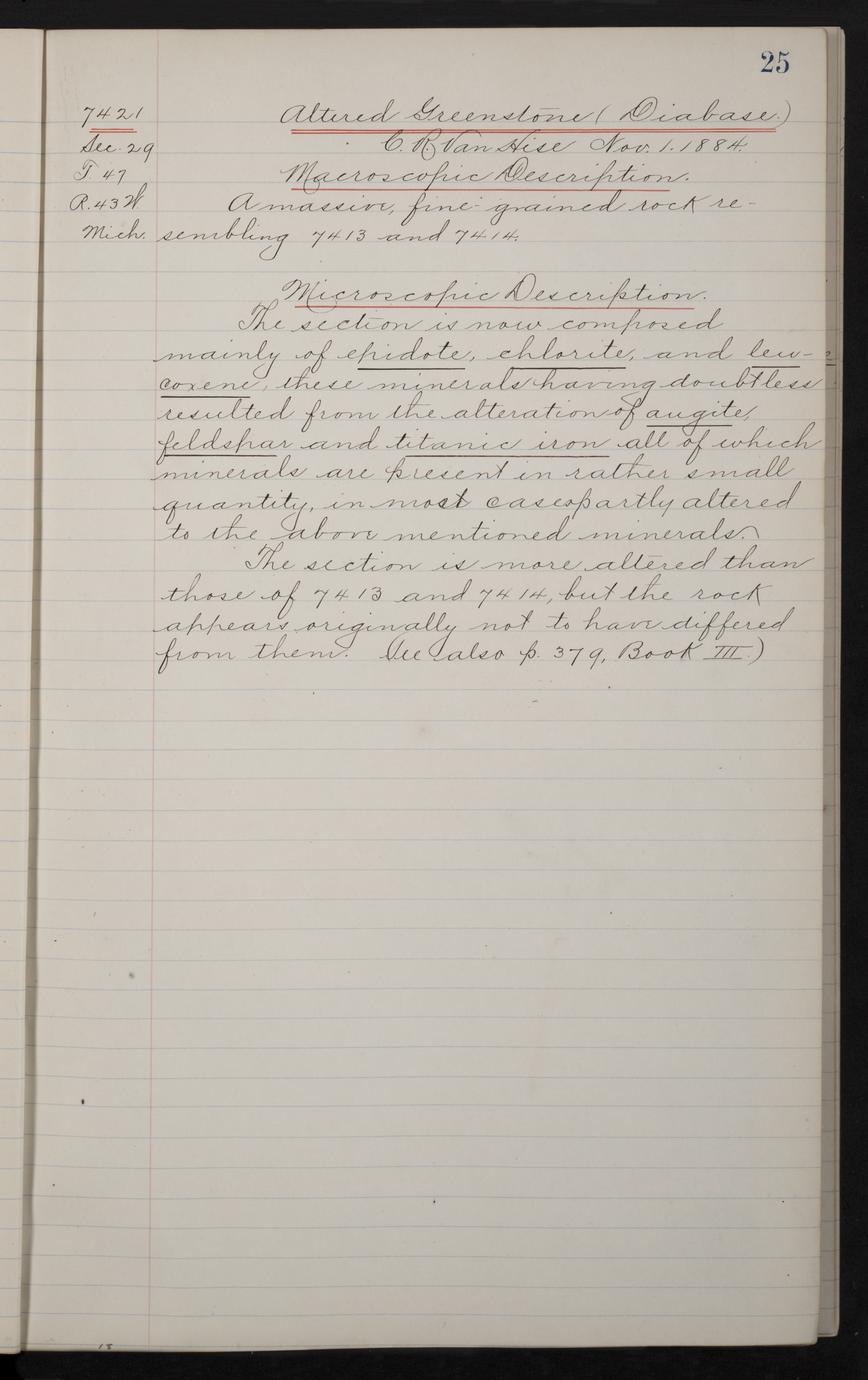 25
7421 Altered Greenstone (Diabase.)
Sec. 29 C. R. Van Hise Nov. 1. 1884.
T 47 Macroscopic Description.
R. 43 W A massive, fine-grained rock re-
Mich. sembling 7413 and 7414.
Microscopic Description.
The section is now composed
mainly of epidote, chlorite, and leu-
coxene, these minerals having doubtless
resulted from the alteration of augite,
feldspar and titanic iron all of which
minerals are present in rather small
quantity, in most cases partly altered
to the above mentioned minerals.
The section is more altered than
those of 7413 and 7414, but the rock
appears originally not to have differed
from them. (See also p. 379, Book III.)